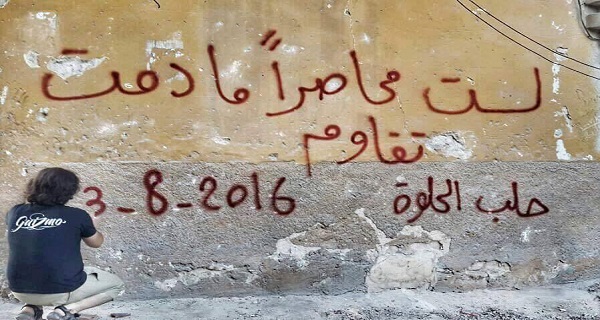 لست محاصراً ما دمت
تقاوم
حلب الحلوة
3-8-2016
Gutzmo